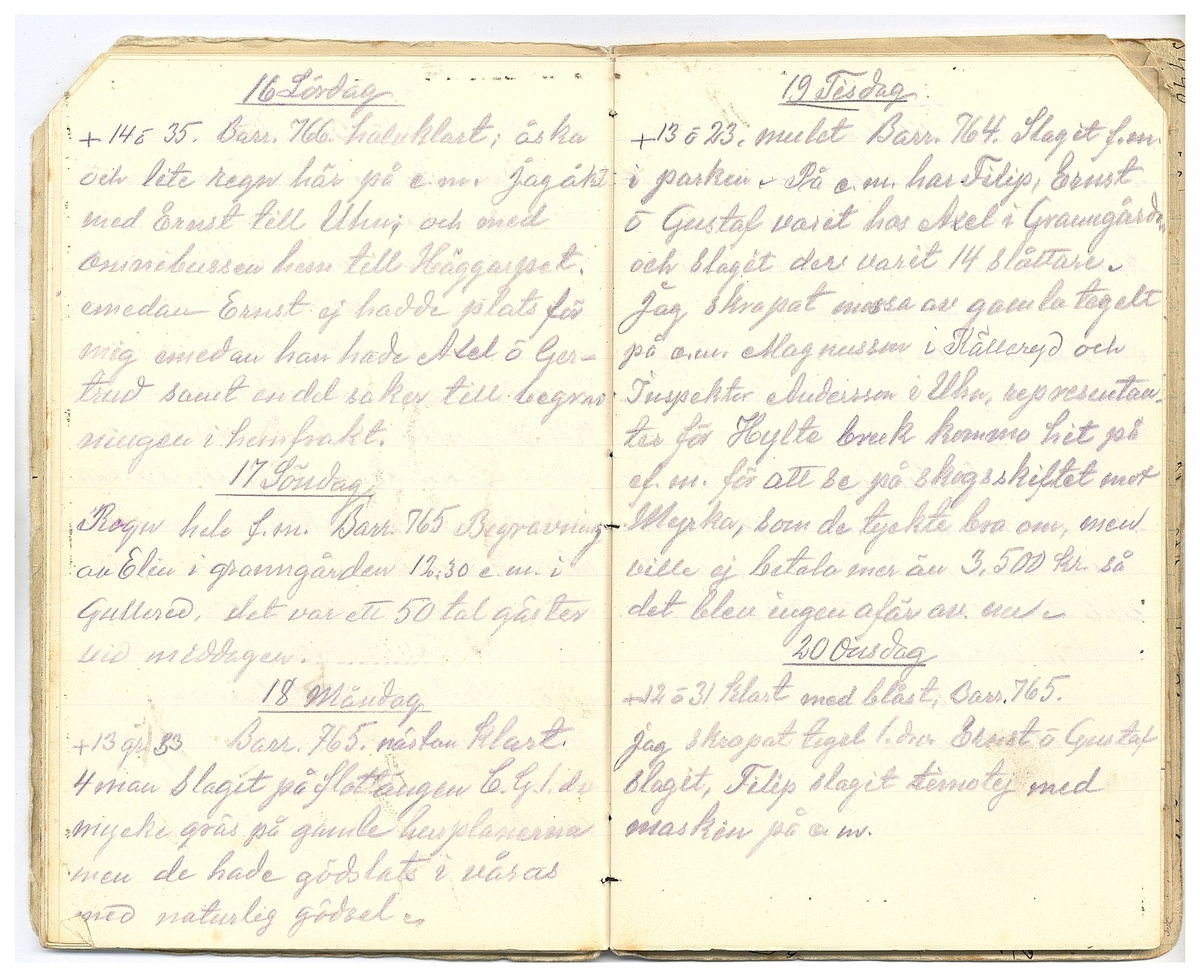 16 Lördag
+ 14 ö 35. Barr. 766. halvklart; åska
och lite regn här på e.m. Jag åkt
med Ernst till Uhn; och med
omnibussen hem till Häggarpet.
emedan Ernst ej hadde plats för
mig emedan han hade Axel ö Ger-
trud samt en del saker till begrav
ningen i hemfrakt.
17 Söndag
Regn hele f.m. Barr. 765 Begravning
av Elin i granngården 12.30 e.m. i
Gullered, det var ett 50 tal gäster
vid middagen.
18 Måndag
+13 gr 33 Barr. 765. nästan klart.
4 man slagit på Slottängen 1. d.
mycke gräs på gamle
men de hade gödslats i våras
med naturlig gödsel.
19 Tisdag.
+13 ö 23. mulet Barr. 764. Slagit f.m.
i parken. På e.m. har Filip, Ernst
ö Gustaf varit hos Axel i Granngården
och slagit der varit 14 slåttare.
Jag skrapat mossa av gamla tegelt
på e.m. Magnusson i Källeryd och
Inspektor Andersson i Uhn, representan-
ter för Hylte bruk kommo hit på
ef.m. för att se på skogsskiftet mot
Myrka, som de tyckte bra om, men
ville ej betala mer än 3,500 kr. så
det blev ingen afär av. nu.
20 Onsdag
+12 ö 31 klart med blåst; Barr. 765.
jag skrapat tegel 1. d.v. Ernst ö Gustaf
slagit, Filip slagit timotej med
maskin på e m.